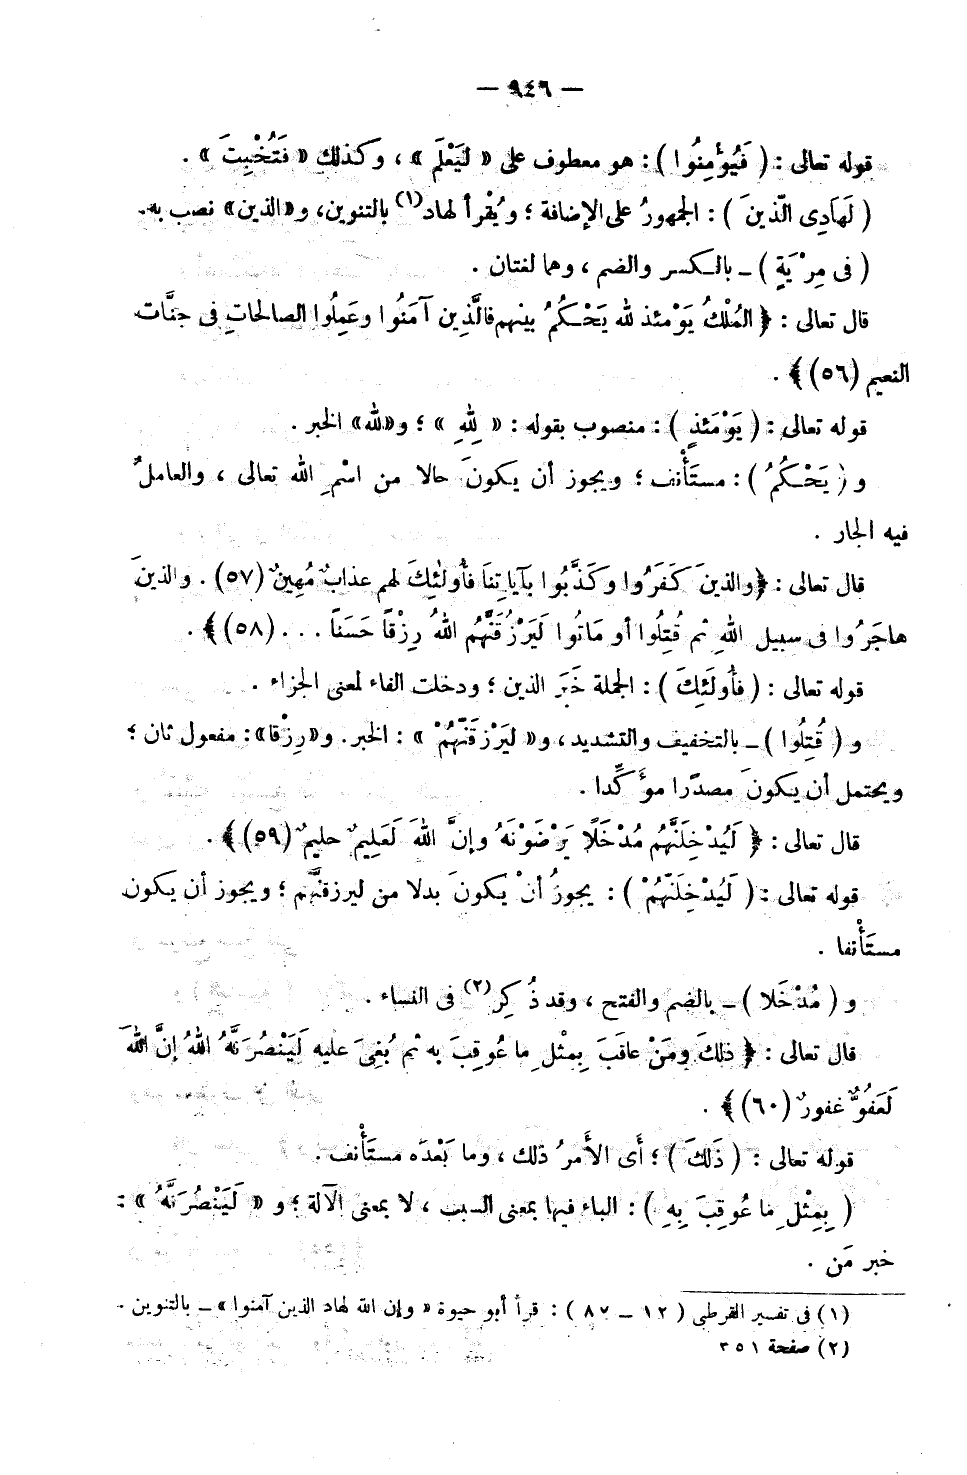 — ٩٤٦ —
قوله تعالى : ( فَيُؤْمِنُوا ) : هو معطوف على « لِيَعْلَمَ » ، وكذلك « فَتُخْبِتَ » .
( لَهَادِى الَّذِينَ ) : الجمهورُ على الإضافة ؛ ويُقْرأ لهاد(١) بالتنوين، و«الذين» نصب به.
( فى مِرْيَةٍ ) ـ بالـكسر والضم ، وهما لغتان .
قال تعالى : ﴿ المُلْكُ يَوْمئذ لله يَحْـكُمُ بينهم فالَّذِين آمَنُوا وعَمِلُوا الصالحاتِ فى جنَّات
النعيم (٥٦)﴾ .
قوله تعالى : ( يَوْمَئذٍ ) : منصوب بقوله : « لِلهِ » ؛ و«لله» الخبر .
و ( يَحْـكُمُ ) : مستَأْنف ؛ ويجوز أن يكونَ حالا من اسْمِ الله تعالى ، والعاملُ
فيه الجار .
قال تعالى : ﴿والذينَ كَفَرُوا وكَذَّبُوا بآياتِنَا فأولئِكَ لهم عذابٌ مُهِينٌ (٥٧) . والذينَ
هاجَرُوا فى سبيل اللهِ ثم قُتِلُوا أو مَاتُوا لَيَرْزُقَنَّهُم اللهُ رِزْقًا حَسَنًا . . . (٥٨)﴾ .
قوله تعالى : ( فأُولَئِكَ ) : الجملة خَبَر الذين ؛ ودخلت الفاء لمعنى الجزاء .
و ( قُتِلُوا ) ـ بالتخفيف والتشديد، و« ليَرْزقَنَّهُمْ » : الخبر. و«رِزْقا»: مفعول ثان ؛
ويحتمل أن يكونَ مصدَرا مؤكِّدا .
قال تعالى : ﴿ لَيُدْخِلَنَّهُم مُدْخَلًا يَرْضَوْنَهُ وإنَّ اللهَ لَعَلِيمٌ حليمٌ (٥٩)﴾ .
قوله تعالى : ( لَيُدْخِلَنّهُمْ ) : يجوزُ أنْ يكونَ بدلا من ليرزقنَّهم ؛ ويجوز أن يكون
مستَأْنفا .
و ( مُدْخَلا ) ـ بالضم والفتح ، وقد ذُكِر(٢) فى النساء .
قال تعالى : ﴿ ذلكَ ومَنْ عاقبَ بِمثْلِ ما عُوقِبَ به ثم بُغِىَ عليه لَيَنْصُرَنَّهُ اللهُ إنَّ اللهَ
لَعَفُوٌّ غفورٌ (٦٠)﴾ .
قوله تعالى : ( ذَلكَ ) ؛ أى الأَمرُ ذلك ، وما بَعْدَه مستَأْنف .
( بِمِثْلِ مَا عُوقِبَ بِهِ ) : الباء فيها بمعنى السبب ، لا بمعنى الآلة ؛ و « لَيَنْصُرَنَّهُ » :
خبر مَن .
(١) فى تفسير القرطبى ( ١٢ ـ ٨٧ ) : قرأ أبو حيوة « وإن الله لهاد الذين آمنوا » ـ بالتنوين .
(٢) صفحة ٣٥١